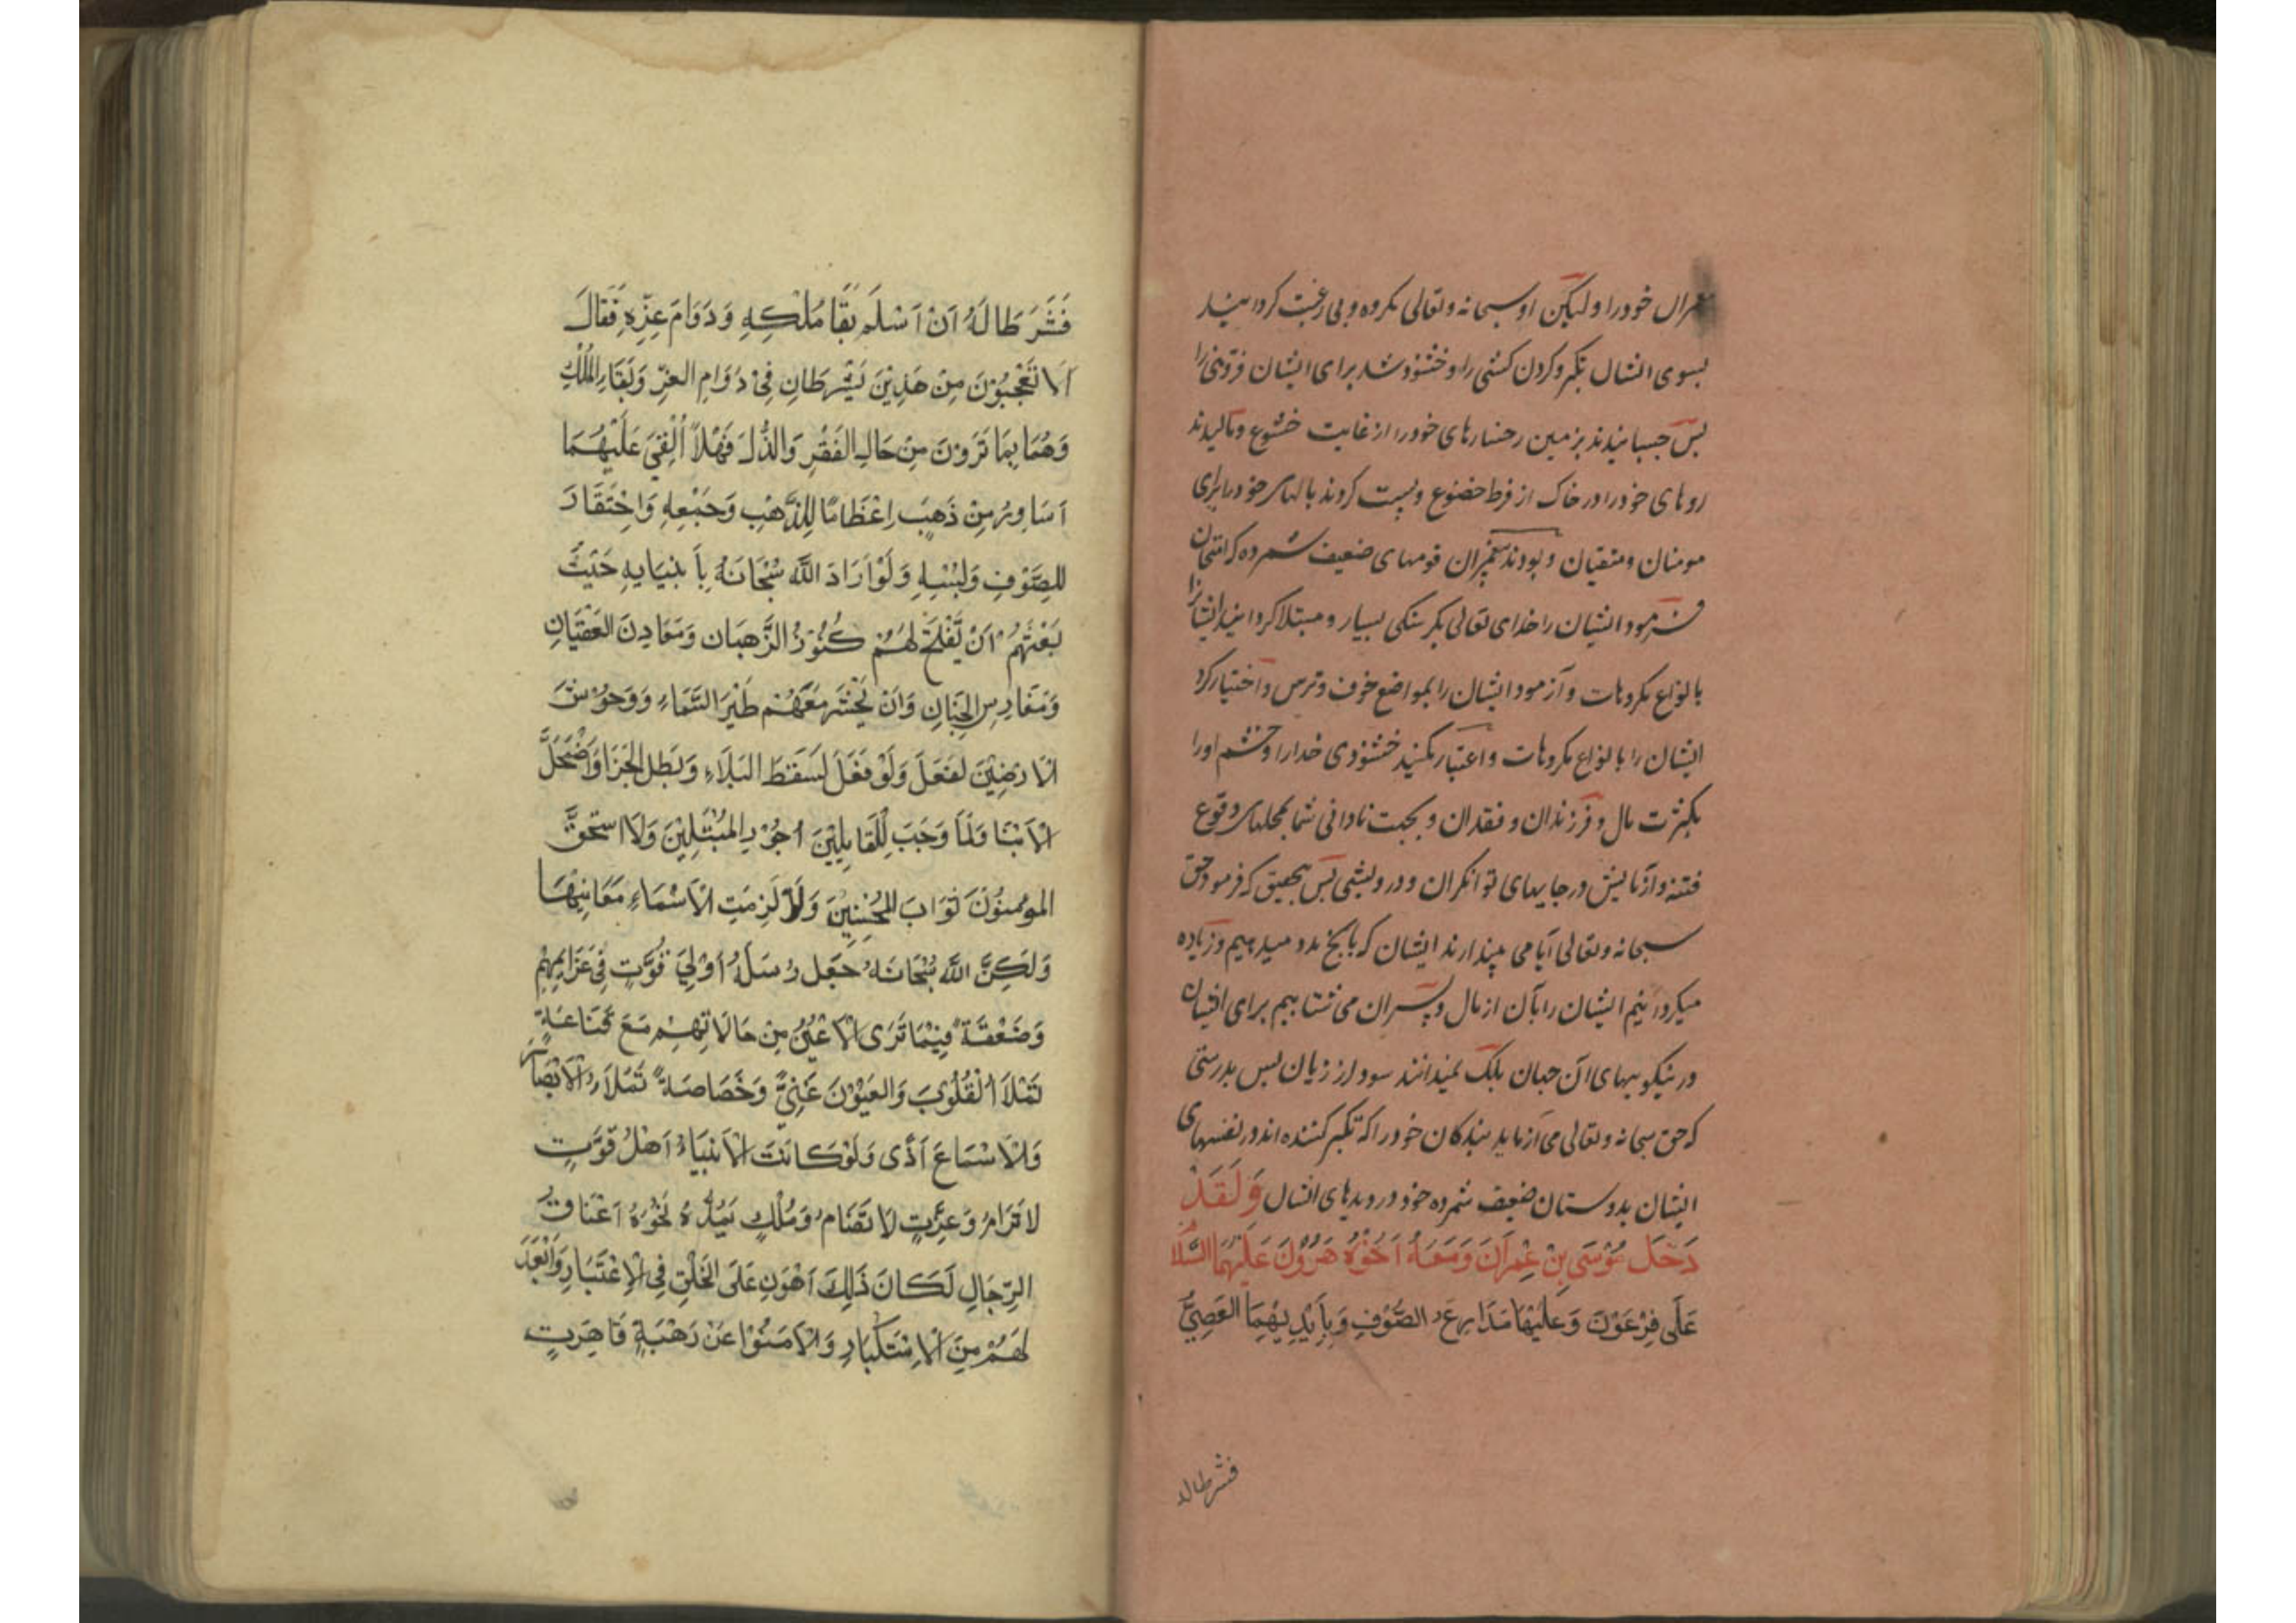 خود را و لیکن او سبحانه و تعالی مکروه و بی رغبت کردانید
بسوی ایشان تکبر و کردن کشی را و خشنود شد برای ایشان فروتنی را
بس جسبانیدند بزمین رخسارهای خود را از غایت خشوع و مالیدند
روهای خود را در خاک از فرط خضوع و بست کردند بالهای خود را برای
مومنان و متقیان و بودند پیغمبران قومهای ضعیف شمرده که امتحان
فرمود ایشان را خدای تعالی بکرسنکی بسیار و مبتلا کردانید ایشانرا
بانواع مکروهات و آزمود ایشان را بمواضع خوف و ترس و اختیار کرد
ایشان را بانواع مکروهات و اعتبار مکنید خشنودی خدا را و خشم او را
بکثرت مال و فرزندان و فقدان و بجهت نادانی شما بمحلهای وقوع
فتنه و آزمایش در جایهای توانکران و درویشی بس بتحقیق که فرمود حق
سبحانه و تعالی آیا می پندارند ایشان که بانج مدد میدهیم و زیاده
میکردانیم ایشان را بآن از مال و پسران می شتابیم برای ایشان
در نیکوییهای آن جهان بلک نمیدانند سود از زیان بس بدرستی
که حق سبحانه و تعالی می آزماید بندکان خود را که تکبر کننده اند در نفسهای
ایشان بدوستان ضعیف شمرده خود در دیدهای ایشان وَلَقَدْ
دَخَلَ مُوْسَی بِنْ عِمْرَانَ وَمَعَهُ اَخُوْهُ هَرُوْنَ عَلَیْهِمَا السَّلَا
عَلَی فِرْعَوْنَ وَ عَلَیْهَا مَدَارِعَ الصُّوْفِ وَبِاَیْدِیْهِمَا العَصِیُّ
فشرطاله
فَشَرَطَا لَهُ اَنْ اَسْلَمَ بَقَا مُلْکِهِ وَدَوَامَ عِزِّهِ فَقَالَ
اَلَا تَعْجَبُوْنَ مِنْ هَذِیْنَ یَشْرِطَانِ فِیْ دَوَامِ العِزِّ وَبَقَاءِ المُلْکِ
وَهُمَا بِمَا تَرَوْنَ مِنْ حَالِ الفَقْرِ وَالذُّلِّ فَهْلَاّ اُلْقِیَ عَلَیْهُمَا
اَسَاوِرُ مِنْ ذَهَبٍ اِعْظَامًا لِلذَّهْبِ وَجَمْعِهِ وَاحْتِقَارَ
للِصَّوْفِ وَلُبْسِهِ وَلَوْ اَرَادَ اللّٰه سُبْحَانَهُ بِاَنْبِیَایِهِ حَیْثُ
بَعْثَهُمْ اَنْ یَّفْتَحَ لَهُمْ کُنُوْزَ الذَّهبَان وَمَعَادِنَ العَقْیَانِ
وَمَغَارِسَ الجِنَانِ وَاَنْ یَحْشُرَ مَعَهُمْ طَیْرَ السَّمَاءِ وَوَحُوْشَ
الاَرَضِیْنَ لَفَعَلَ وَلَوْ فَعَلَ لَسَقَطَ البَلَاءِ وَبَطل الجَزَا وَاضْمَحَلَّ
الْاَنْبَا وَلَمَا وَجَبَ لِلقَابِلِیْنَ اُجُوْرِ المُبْتَلِیْنَ وَلَا اسْتَحَقَّ
المومِنُوْنَ ثَوَابَ المُحْسِنِیْنَ وَلَا لَزِمَتِ الْاَسْمَاءِ مَعَانِیْهَا
وَلَکِنَّ اللّٰهَ سُبْحَانَهُ جَعَل رُسَلَهُ اَوْلِیْ قُوَّتٍ فِیْ عَزَایِمِهِمْ
وَضَعْفَةً فِیْمَا تَرَی الْاَعْیُنُ مِنْ حَالَاتِهِمْ مَعَ قَنَاعَةٍ
تَمْلَأُ الْقُلُوْبَ وَالعَیُوْنَ غَنِیًّ وَخَصَاصَةً تَمْلَأُ الْاَبْصَارَ
وَالْاَسْمَاعَ اَذًی وَلَوْ کَانَتَ الْاَنْبِیَاءُ اَهْلُ قُوَّتٍ
لَا تَرَامُ وَعِزَّتٍ لَا تَضَامُ وَمُلْکٍ یَمُدُّهُ نَحْوَهُ اَعْنَاقُ
الرِّجَالِ لَکَانَ ذَلِکَ اَهْوَنَ عَلَی الخَلْقِ فِی الْاِعْتَبَارِ وَاَبْعَدَ
لَهُمْ مِنَ الْاِسْتکْبَارِ وَلَاَمَنُوْا عَنْ رَهْبَةٍ قَاهِرَتٍ